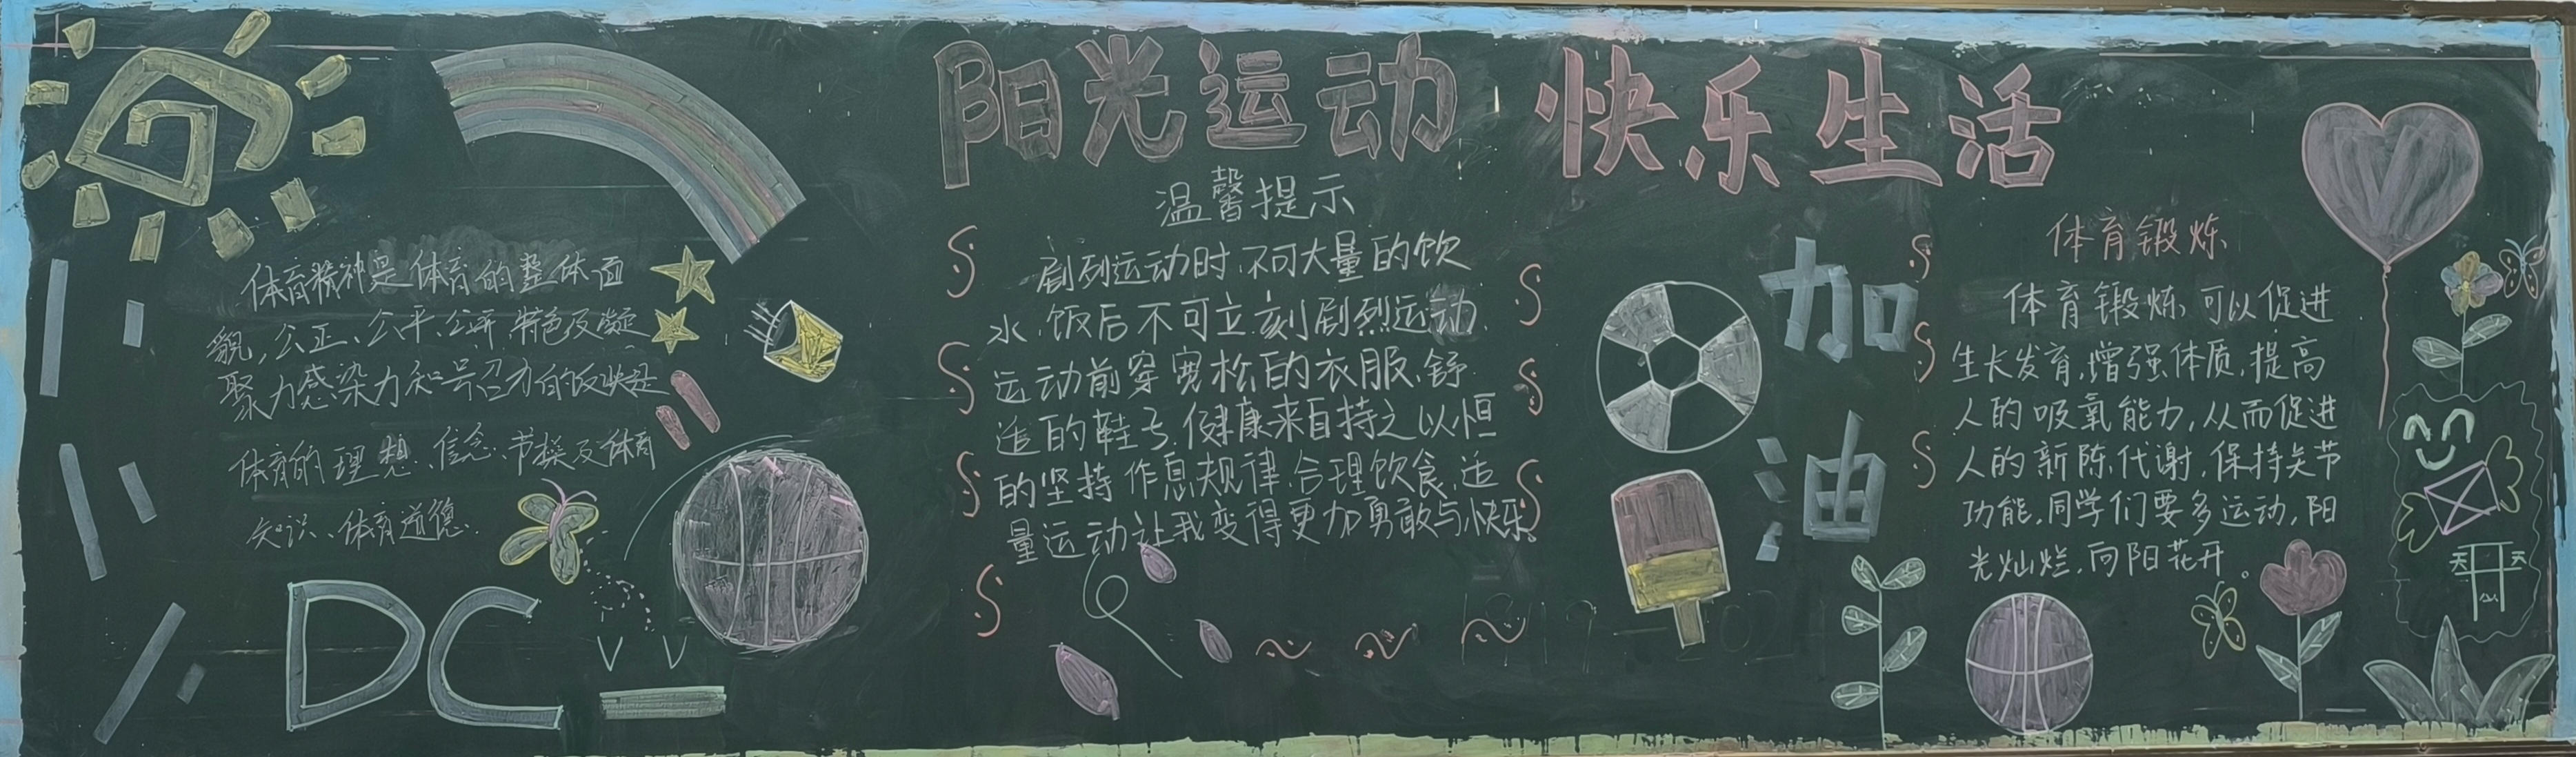 阳光运动 快乐生活
体育精神是体育的整体面
貌,公正、公平、公开,特色及凝
聚力感染力和号召力的反映是
体育的理想、信念、节操及体育
知识、体育道德.
DC
温馨提示
剧烈运动时,不可大量的饮
水,饭后不可立刻剧烈运动,
运动前穿宽松的衣服,舒
适的鞋子,健康来自持之以恒
的坚持,作息规律,合理饮食,适
量运动让我变得更加勇敢与快乐。
加油
体育锻炼
体育锻炼可以促进
生长发育,增强体质,提高
人的吸氧能力,从而促进
人的新陈代谢,保持关节
功能,同学们要多运动,阳
光灿烂,向阳花开。